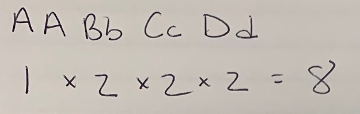 AA Bb Cc Dd
1 × 2 × 2 × 2 = 8